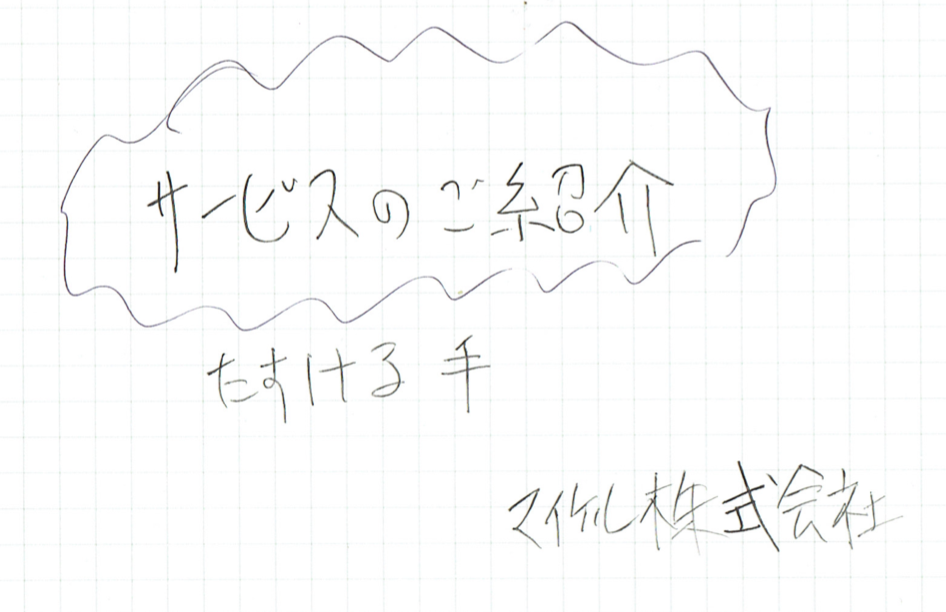 サービスのご紹介
たすける手
マイケル株式会社